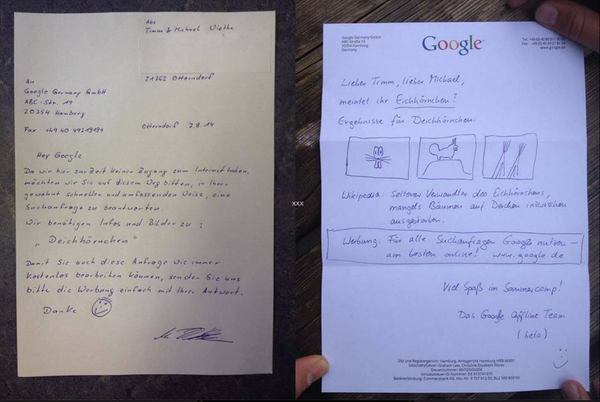 Abs
Timm & Michael
21762 Otterndorf
An
Google Germany GmbH
ABC-Str. 19
20354 Hamburg
Fax +49 40 492 19194
Otterndorf 7.8.14
Hey Google
Da wir hier zur Zeit keinen Zugang zum Internet haben,
möchten wir Sie auf diesem Weg bitten, in Ihrer
gewohnt schnellen und umfassenden Weise, eine
Suchanfrage zu beantworten
Wir benötigen Infos und Bilder zu:
„Deichhörnchen"
Damit Sie auch diese Anfrage wie immer
kostenlos bearbeiten können, senden Sie uns
bitte die Werbung einfach mit Ihrer Antwort.
Danke
xxx
Google Germany GmbH
ABC-Straße 19
20354 Hamburg
Germany
Google
www.google.de
Lieber Timm, lieber Michael,
meintet ihr Eichhörnchen?
Ergebnisse für Deichhörnchen:
Wikipedia: Seltener Verwandter des Eichhörnchens,
mangels Bäumen auf Deichen inzwischen
ausgestorben.
Werbung: Für alle Suchanfragen Google nutzen –
am besten online! www.google.de
Viel Spaß im Sommercamp!
Das Google Offline Team
(beta)